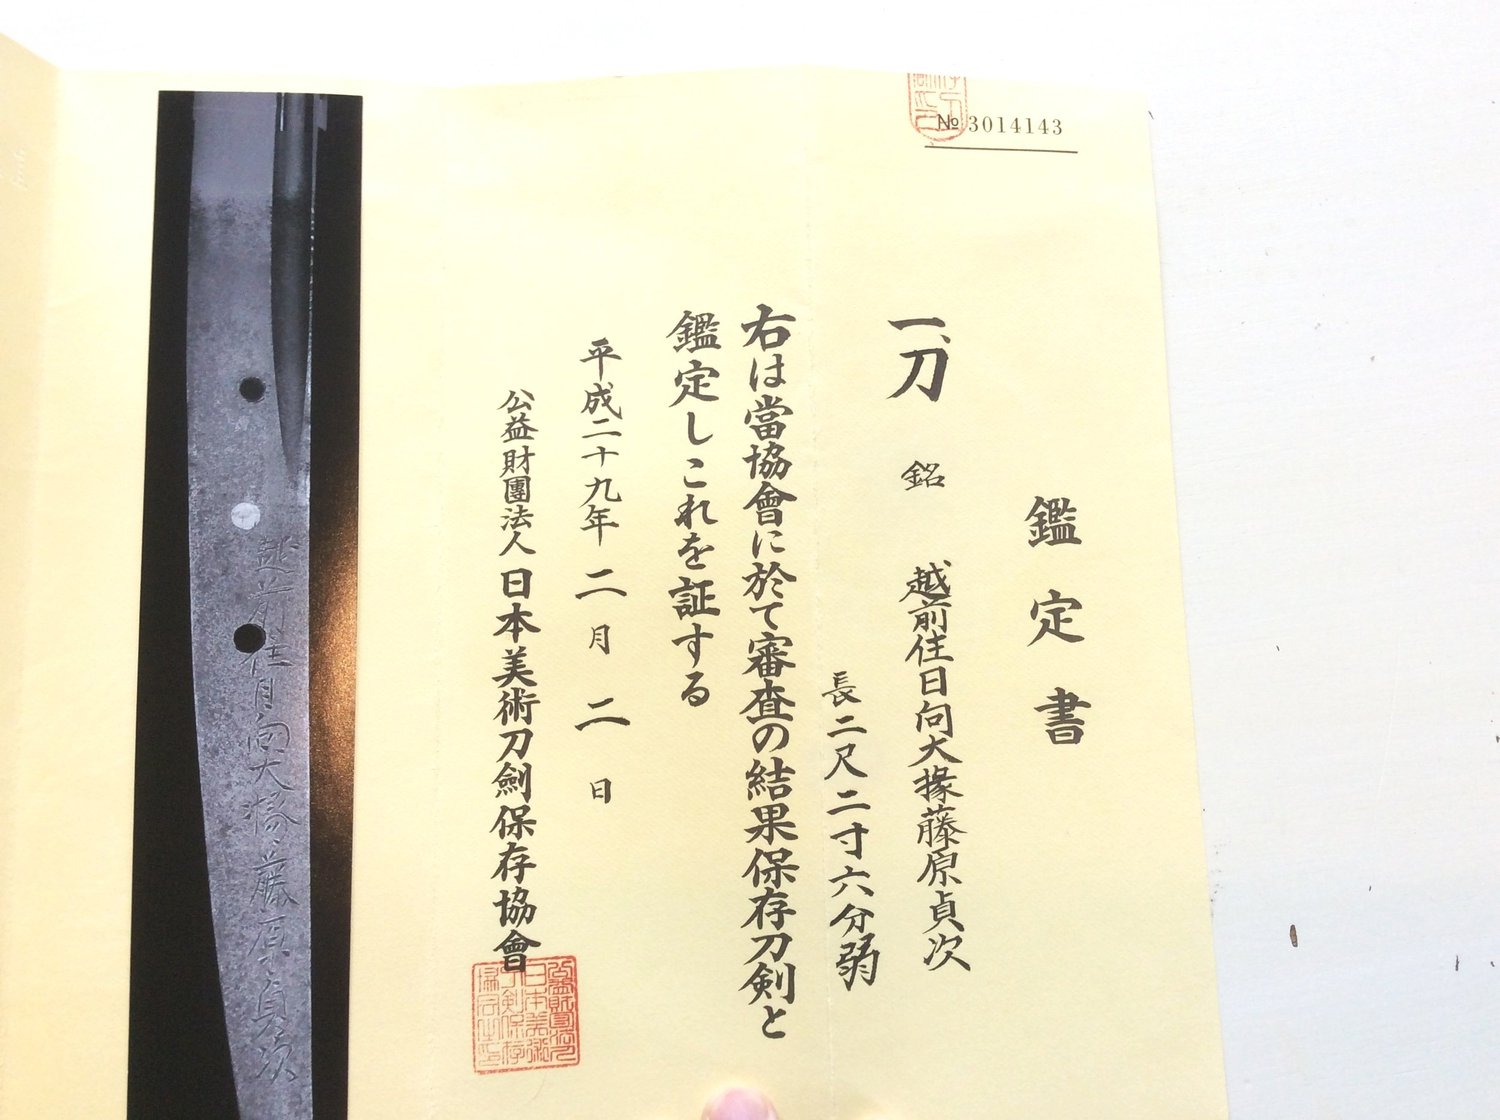 № 3014143
鑑定書
一、刀 銘 越前住日向大掾藤原貞次
長二尺二寸六分弱
右は當協會に於て審査の結果保存刀剣と
鑑定しこれを証する
平成二十九年二月二日
公益財團法人日本美術刀劍保存協會
越前住日向大掾藤原貞次